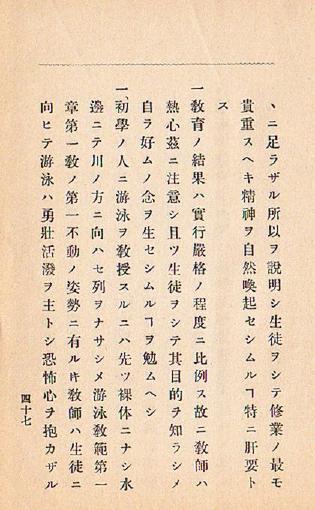 、ニ足ラザル所以ヲ説明シ生徒ヲシテ修業ノ最モ
貴重スヘキ精神ヲ自然喚起セシムルヿ特ニ肝要ト
ス
一教育ノ結果ハ實行嚴格ノ程度ニ比例ス故ニ教師ハ
熱心茲ニ注意シ且ツ生徒ヲシテ其目的ヲ知ラシメ
自ラ好ムノ念ヲ生セシムルヿヲ勉ムヘシ
一、初學ノ人ニ游泳ヲ敎授スルニハ先ツ裸体ニナシ水
邊ニテ川ノ方ニ向ハセ列ヲナサシメ游泳敎範第一
章第一敎ノ第一不動ノ姿勢ニ有ルキ敎師ハ生徒ニ
向ヒテ游泳ハ勇壯活潑ヲ主トシ恐怖心ヲ抱カザル
四十七